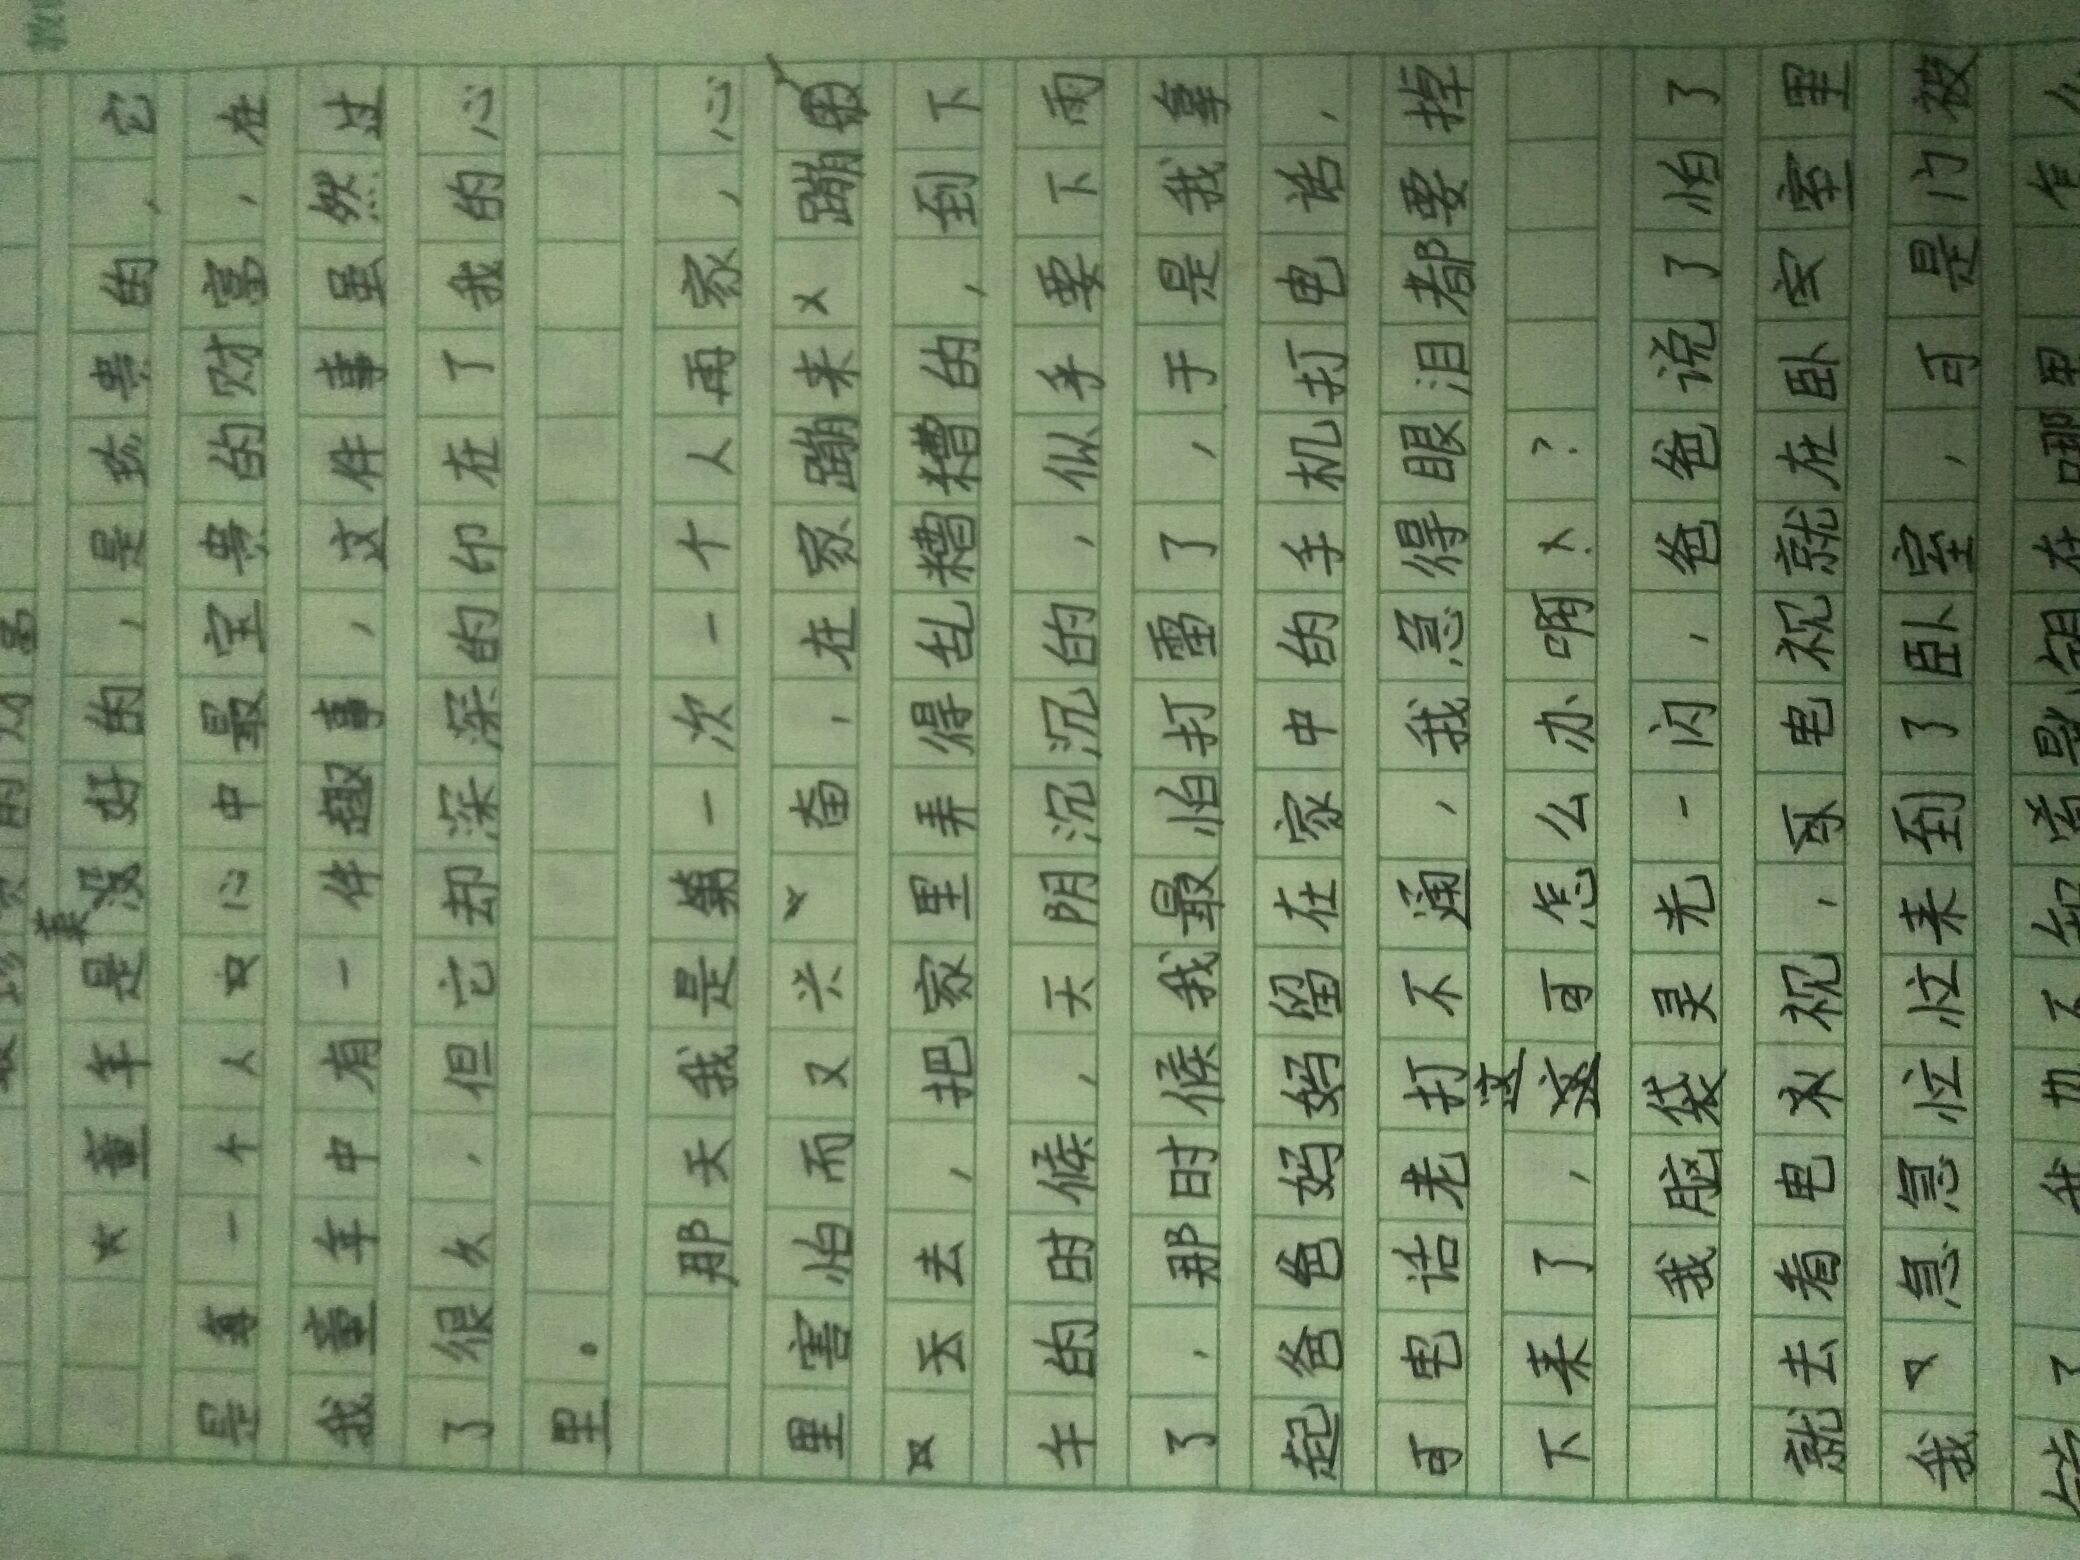 最珍贵的财富
童年是美好的，是珍贵的，它
是每一个人心中最宝贵的财富，在
我童年中有一件趣事，这件事虽然过
了很久，但它却深深的印在了我的心
里。
那天我是第一次一个人再家，心
里害怕而又兴奋，在家蹦来蹦
去，把家里弄得乱糟糟的，到下
午的时候，天阴沉沉的，似乎要下雨
了，那时候我最怕打雷了，于是我拿
起爸爸妈妈留在家中的手机打电话，
可电话老打不通，我急得眼泪都要掉
下来了，这可怎么办啊？
我脑袋灵光一闪，爸爸说了怕了
就去看电视，电视就在卧室里
我急急忙忙来到了卧室，可是门被
了 我也不知道是 在哪里